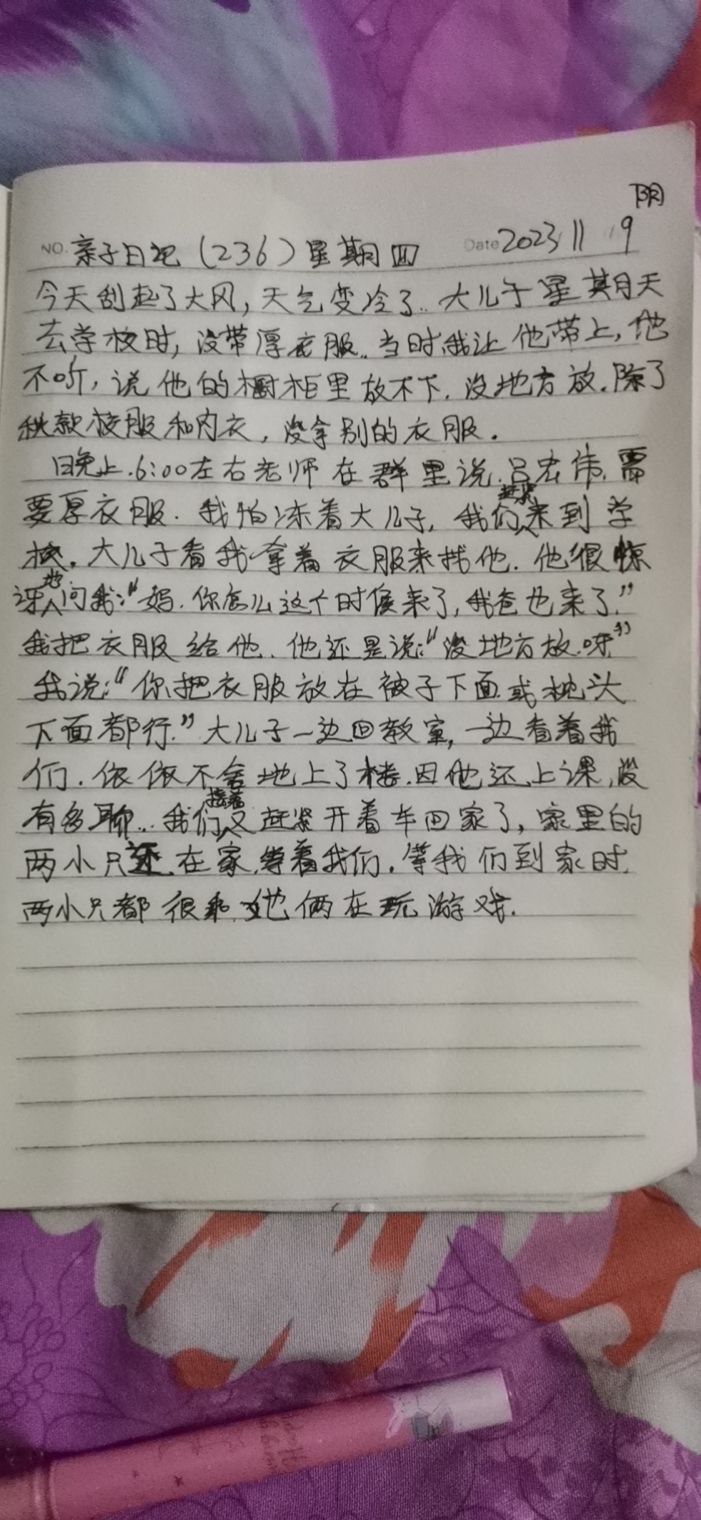 阴
NO. 亲子日记（236）星期四 Date 2023 11 9
今天刮起了大风，天气变冷了。大儿子星期天
去学校时，没带厚衣服。当时我让他带上，他
不听，说他的橱柜里放不下，没地方放。除了
秋款校服和内衣，没拿别的衣服。
晚上6:00左右老师在群里说，吕宏伟，需
要厚衣服。我怕冻着大儿子，我们赶紧来到学
校。大儿子看我拿着衣服来找他，他很惊
讶地问我：“妈，你怎么这个时侯来了，我爸也来了”
我把衣服给他，他还是说：“没地方放呀”
我说：“你把衣服放在被子下面或枕头
下面都行。”大儿子一边回教室，一边看着我
们，依依不舍地上了楼，因他还上课，没
有多聊，我们接着又赶紧开着车回家了，家里的
两小只还在家等着我们。等我们到家时，
两小只都很乖，她俩在玩游戏.